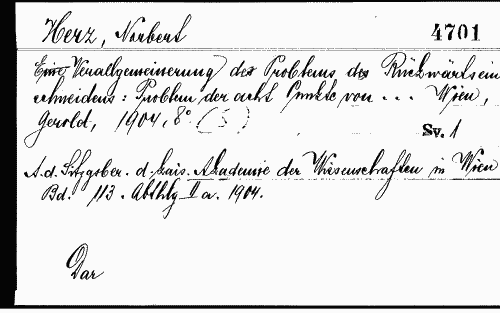 Herz, Norbert 4701
Eine Verallgemeinerung des Problems des Rückwärtsein
schneidens: Problem der acht Punkte von ... Wien,
Gerold, 1904, 8° (S)
Sv. 1
A. d. Sitzgsber. d. kais. Akademie der Wissenschaften in Wien
Bd. 113. Abthlg II a. 1904.
Dar